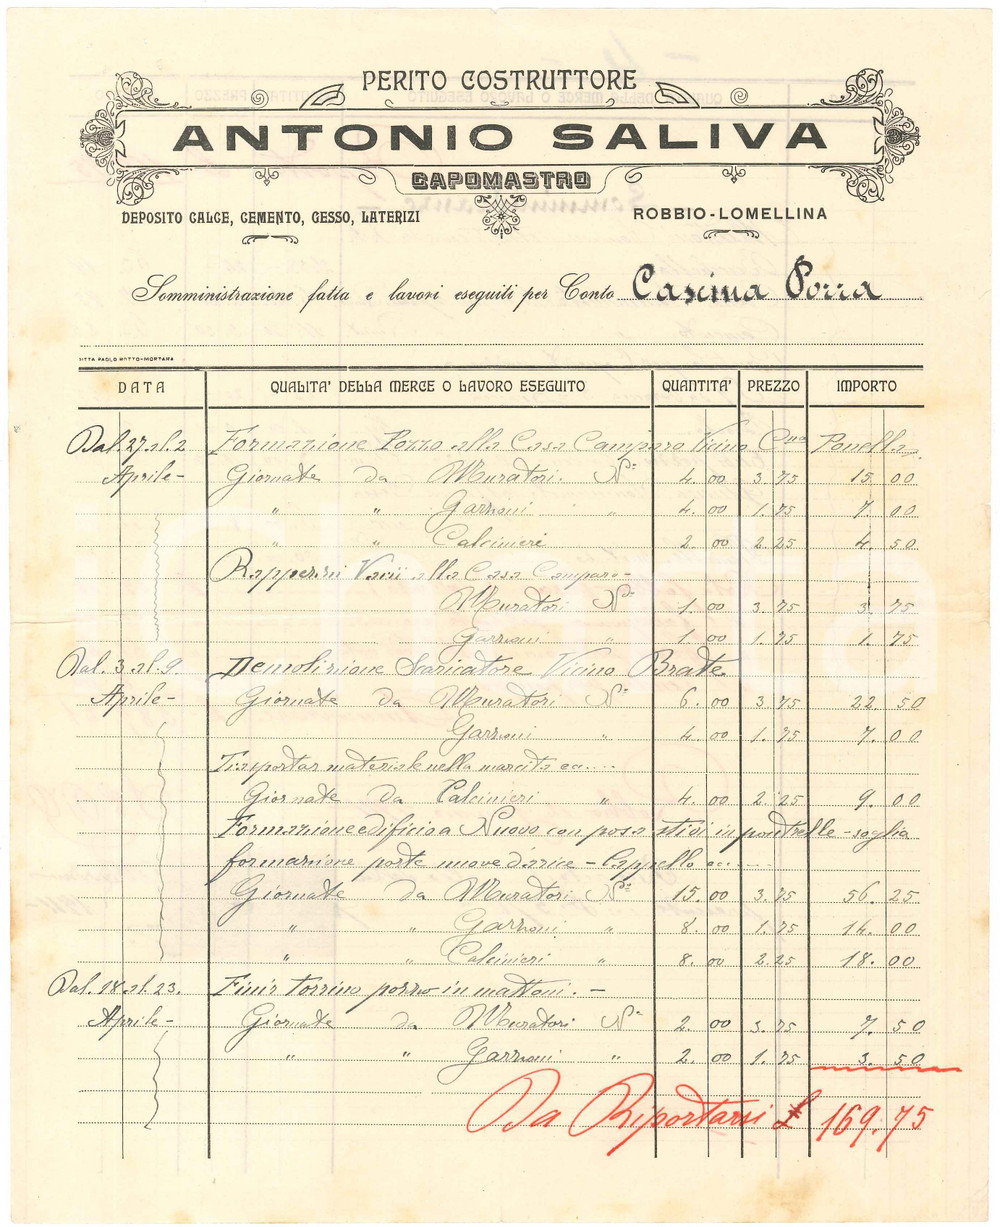 PERITO COSTRUTTORE
ANTONIO SALIVA
CAPOMASTRO
DEPOSITO CALCE, CEMENTO, GESSO, LATERIZI
ROBBIO-LOMELLINA
Somministrazione fatta e lavori eseguiti per Conto Cascina Porra
DITTA PAOLO MOTTO-MORTARA
DATA QUALITA' DELLA MERCE O LAVORO ESEGUITO QUANTITA' PREZZO IMPORTO
Dal 27 al 2 Formazione Pozzo alla Casa Camparo Vicino Cna Ponella
Aprile- Giornate da Muratori. No 4.00 3.75 15.00
" " Garzoni " 4.00 1.75 7.00
" " Calcinieri 2.00 2.25 4.50
Rapperini Varii alla Casa Camparo-
Muratori No 1.00 3.75 3.75
Garzoni " 1.00 1.75 1.75
Dal. 3 al. 9. Demolizione Scaricatore Vicino Brate
Aprile- Giornate da Muratori No 6.00 3.75 22.50
Garzoni " 4.00 1.75 7.00
Trasportar materiale nella marcita ec....
Giornate da Calcinieri " 4.00 2.25 9.00
Formazione edificio a Nuovo con posa stivi in poutrelle - soglia
formazione porte nuove d'arice - Cappello ec....
Giornate da Muratori No 15.00 3.75 56.25
" " Garzoni " 8.00 1.75 14.00
" " Calcinieri " 8.00 2.25 18.00
Dal. 18 al. 23. Finir torrino pozzo in mattoni. -
Aprile- Giornate da Muratori No 2.00 3.75 7.50
" " Garzoni " 2.00 1.75 3.50
Da Riportarsi £ 169.75